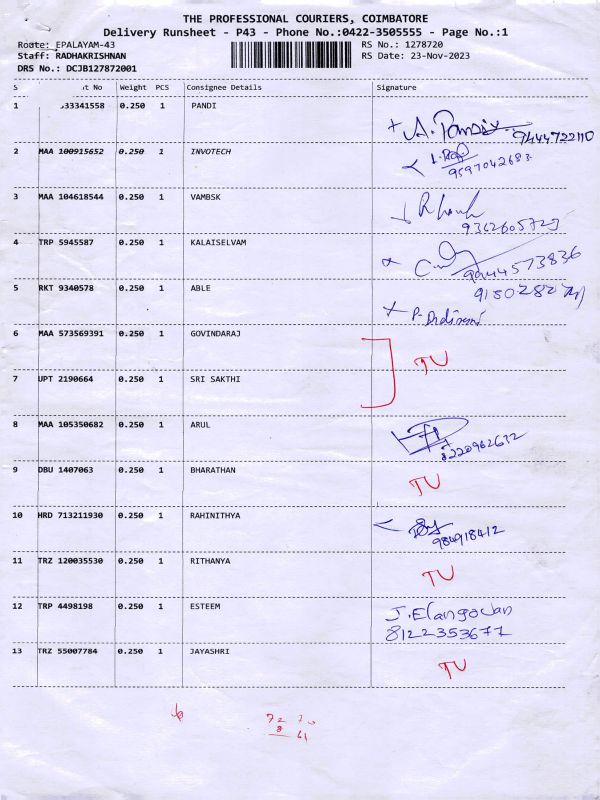 THE PROFESSIONAL COURIERS, COIMBATORE
Delivery Runsheet - P43 - Phone No.:0422-3505555 - Page No.:1
Route: EPALAYAM-43 RS No.: 1278720
Staff: RADHAKRISHNAN RS Date: 23-Nov-2023
DRS No.: DCJB127872001
S t No Weight PCS Consignee Details Signature
1 33341558 0.250 1 PANDI
9444722110
2 MAA 100915652 0.250 1 INVOTECH
9597042683
3 MAA 104618544 0.250 1 VAMBSK
9362605723
4 TRP 5945587 0.250 1 KALAISELVAM
9944573836
5 RKT 9340578 0.250 1 ABLE
6 MAA 573569391 0.250 1 GOVINDARAJ
TU
7 UPT 2190664 0.250 1 SRI SAKTHI
8 MAA 105350682 0.250 1 ARUL
8220962672
9 DBU 1407063 0.250 1 BHARATHAN
TU
10 HRD 713211930 0.250 1 RAHINITHYA
984918412
11 TRZ 120035530 0.250 1 RITHANYA
TU
12 TRP 4498198 0.250 1 ESTEEM
J. Elangovan
8122353677
13 TRZ 55007784 0.250 1 JAYASHRI
TU